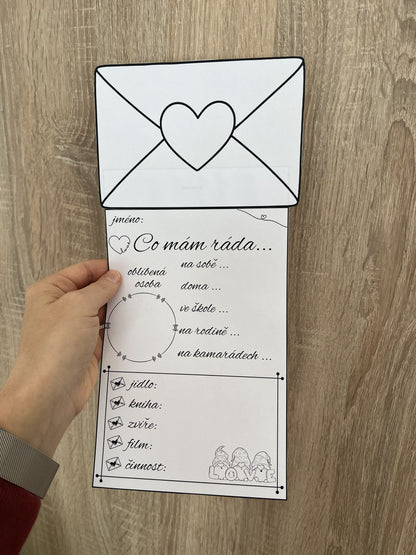 jméno:
Co mám ráda...
oblíbená
osoba
na sobě ...
doma ...
ve škole ...
na rodině ...
na kamarádech ...
jídlo:
kniha:
zvíře:
film:
činnost:
LOVE